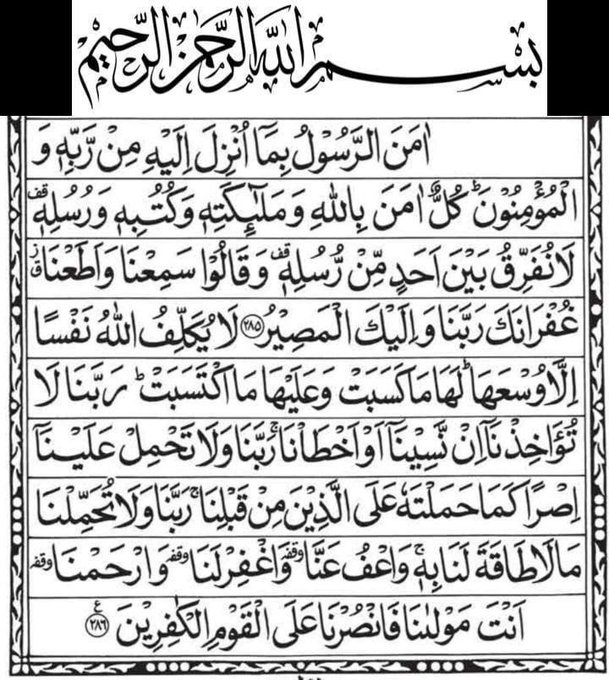 بسم الله الرحمن الرحيم
اٰمَنَ الرَّسُوْلُ بِمَاۤ اُنْزِلَ اِلَيْهِ مِنْ رَّبِّهٖ وَ
الْمُؤْمِنُوْنَ ؕ كُلٌّ اٰمَنَ بِاللّٰهِ وَ مَلٰٓئِكَتِهٖ وَ كُتُبِهٖ وَ رُسُلِهٖ قف
لَا نُفَرِّقُ بَيْنَ اَحَدٍ مِّنْ رُّسُلِهٖ قف وَ قَالُوْا سَمِعْنَا وَ اَطَعْنَا ق ز
غُفْرَانَكَ رَبَّنَا وَ اِلَيْكَ الْمَصِيْرُ ﴿۲۸۵﴾ لَا يُكَلِّفُ اللّٰهُ نَفْسًا
اِلَّا وُسْعَهَا ؕ لَهَا مَا كَسَبَتْ وَ عَلَيْهَا مَا اكْتَسَبَتْ ؕ رَبَّنَا لَا
تُؤَاخِذْنَاۤ اِنْ نَّسِيْنَاۤ اَوْ اَخْطَاْنَا ۚ رَبَّنَا وَ لَا تَحْمِلْ عَلَيْنَاۤ
اِصْرًا كَمَا حَمَلْتَهٗ عَلَى الَّذِيْنَ مِنْ قَبْلِنَا ۚ رَبَّنَا وَ لَا تُحَمِّلْنَا
مَا لَا طَاقَةَ لَنَا بِهٖ ۚ وَ اعْفُ عَنَّا وقفة وَ اغْفِرْ لَنَا وقفة وَ ارْحَمْنَا وقفة
اَنْتَ مَوْلٰىنَا فَانْصُرْنَا عَلَى الْقَوْمِ الْكٰفِرِيْنَ ﴿۲۸۶﴾ ع